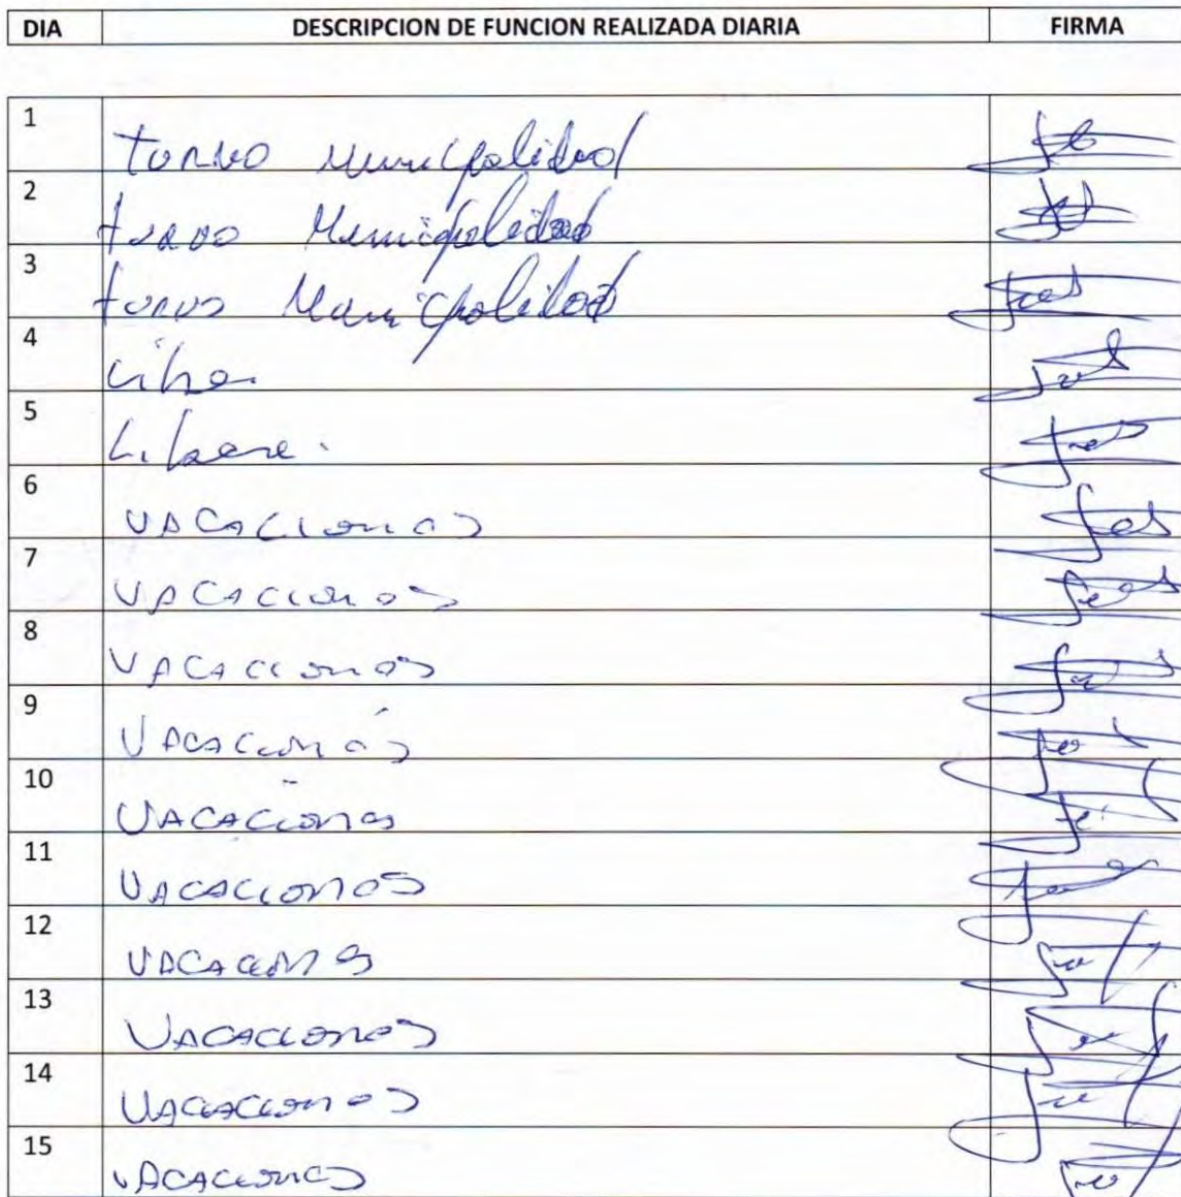 DIA DESCRIPCION DE FUNCION REALIZADA DIARIA FIRMA
1 Turno Municipalidad
2 turno Municipalidad
3 turno Municipalidad
4 Libre.
5 Libere.
6 VACACIONES
7 VACACIONES
8 VACACIONES
9 VACACIONES
10 VACACIONES
11 VACACIONES
12 VACACIONES
13 VACACIONES
14 VACACIONES
15 VACACIONES